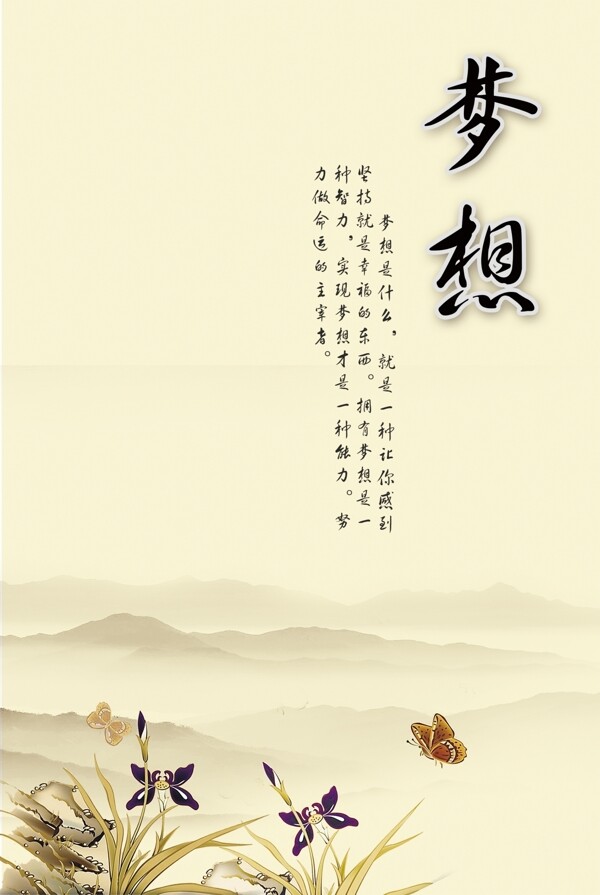 梦想
梦想是什么，就是一种让你感到
坚持就是幸福的东西。拥有梦想是一
种智力，实现梦想才是一种能力。努
力做命运的主宰者。